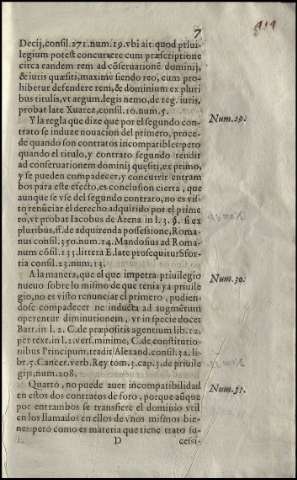 7
Decij, consil. 271. num. 19. vbi ait quod priui-
legium potest concurrere cum præscriptione
circa eandem rem ad cõseruationẽ dominij,
& iuris quæsiti, maxime siendo reo, cum pro-
hibetur defendere rem, & dominium ex pluri
bus titulis, vt argum. legis nemo, de reg. iuris,
probat late Xuarez, consil. 10. num. 5.
Y la regla que dize que por el segundo con-
trato se induze nouacion del primero, proce-
de quando son contratos incompatibles: pero
quando el titulo, y contrato segundo tendit
ad conseruationem dominij quæsiti, ex primo,
y se pueden compadecer, y concurrir entram
bos para este efecto, es conclusion cierta, que
aunque se vse del segundo contrato, no es vis-
to renũciar el derecho adquirido por el prime
ro, vt probat Iacobus de Arena in l. 3. §. si ex
pluribus, ff. de adquirenda possessione, Roma-
nus consil. 350. num. 14. Mandosius ad Roma-
num consil. 133. littera E. late prosequitur Sfor-
tia consil. 23. num. 13.
A la manera, que el que impetra priuilegio
nueuo sobre lo mismo de que tenia ya priuile
gio, no es visto renunciar el primero, pudien-
dose compadecer ne inducta ad augmẽtum
operentur diminutionem, vt in specie docet
Bart. in l. 2. C. de præpositis agentium lib. 12.
per text. in l. 12. vers. minime, C. de constitutio-
nibus Principum, tradit Alexand. consil. 32. li.
br. 5. Cancer. verb. Rey tom. 3. cap. 3. de priuile
gijs, num. 208.
Quarto, no puede auer incompatibilidad
en estos dos contratos de foro, porque aũque
por entrambos se transfiere el dominio vtil
en los llamados en ellos de vnos mismos bie-
nes: pero como es materia que tiene trato su-
D
cessi-
Num. 29.
Num. 30.
Num. 31.